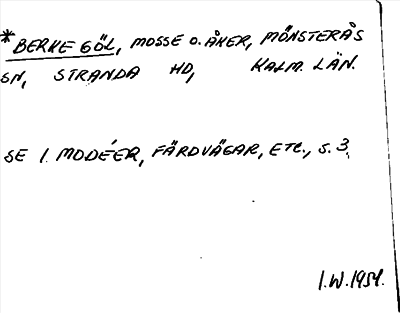 *BERKE GÖL, MOSSE O. ÅKER, MÖNSTERÅS
SN, STRANDA HD, KALM. LÄN.
SE I. MODÉER, FÄRDVÄGAR, ETC., S. 3.
I.W. 1954.